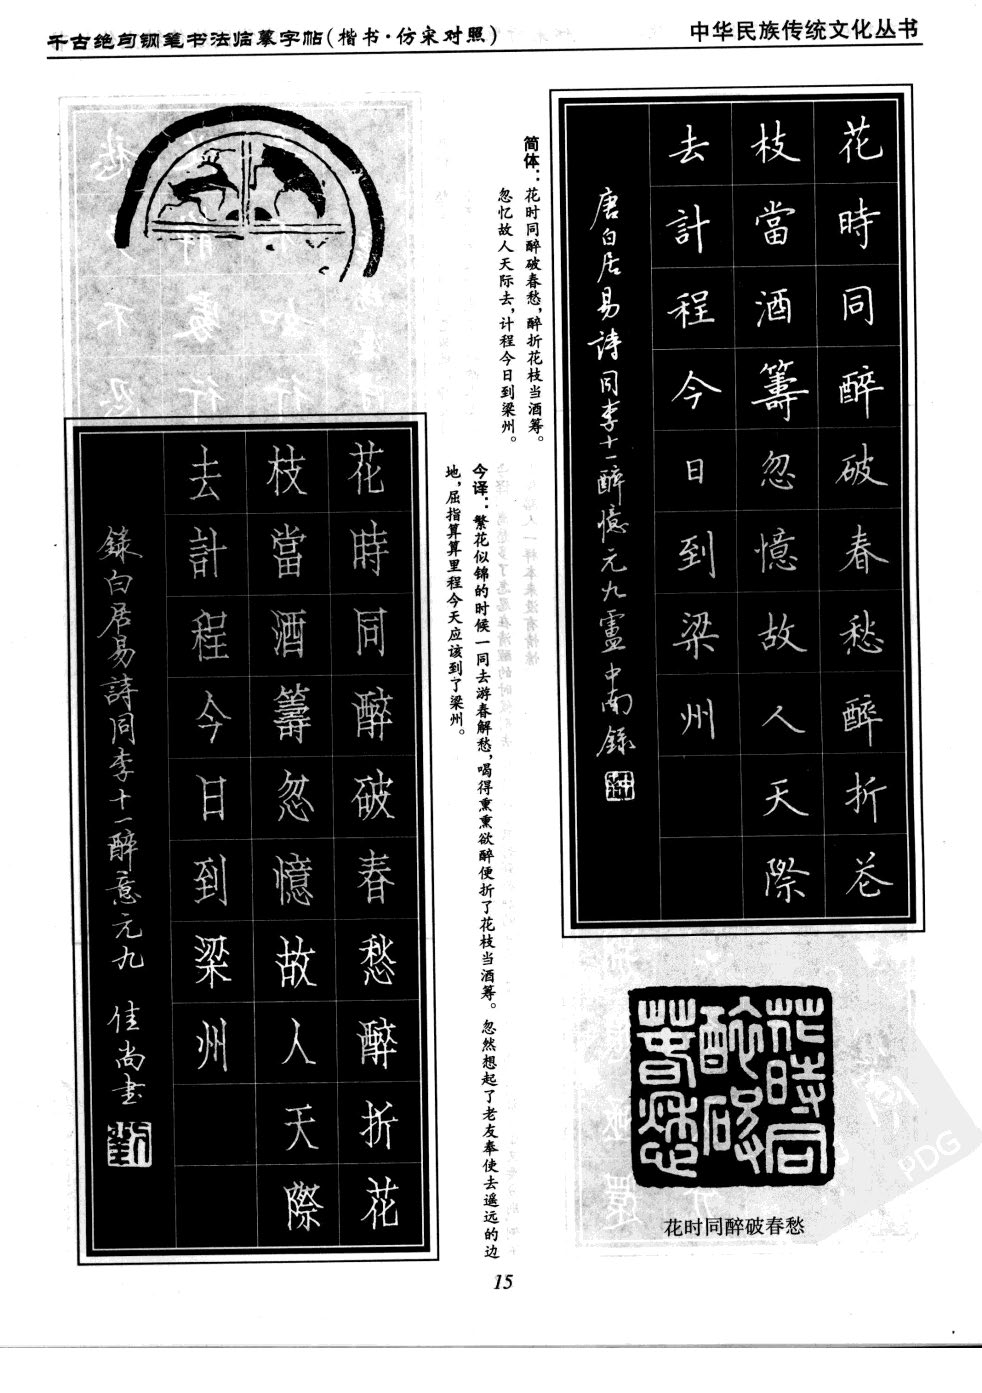 千古绝句钢笔书法临摹字帖(楷书·仿宋对照)
中华民族传统文化丛书
花時同醉破春愁醉折花
枝當酒籌忽憶故人天際
去計程今日到梁州
唐白居易詩同李十一醉憶元九盧中南錄
简体：花时同醉破春愁，醉折花枝当酒筹。
忽忆故人天际去，计程今日到梁州。
今译：繁花似锦的时候一同去游春解愁，喝得熏熏欲醉便折了花枝当酒筹。忽然想起了老友奉使去遥远的边
地，屈指算算里程今天应该到了梁州。
花時同醉破春愁醉折花
枝當酒籌忽憶故人天際
去計程今日到梁州
錄白居易詩同李十一醉意元九 佳尚书
花時同
醉破
春愁
花时同醉破春愁
15
PDG